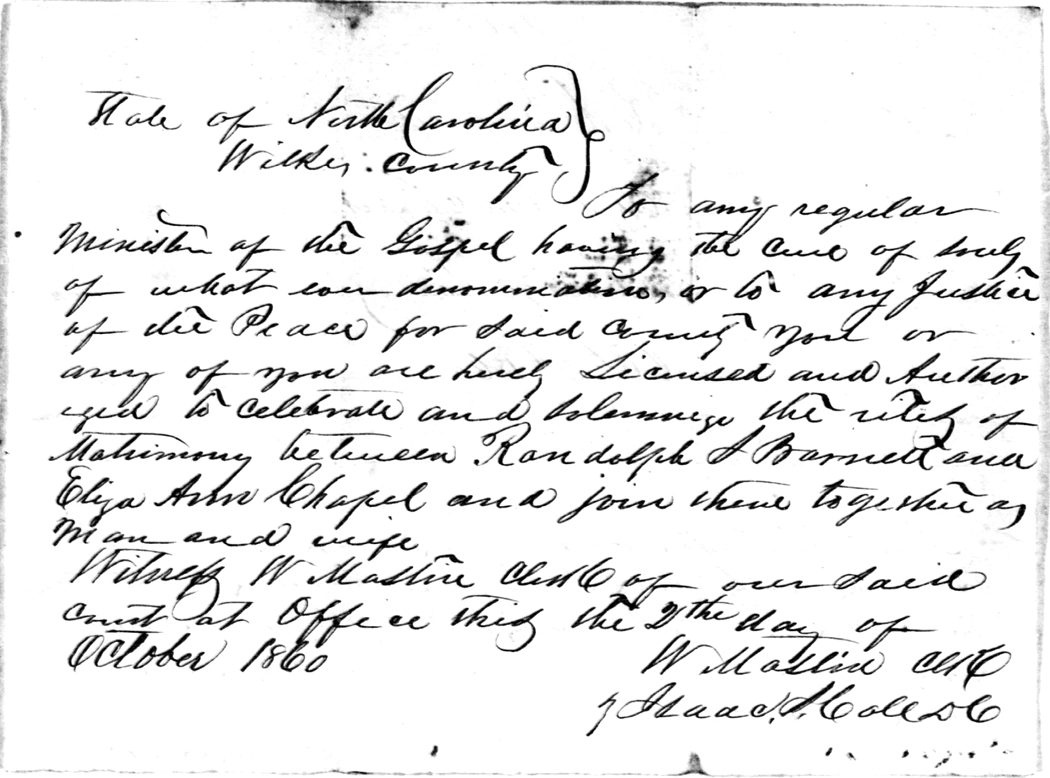 State of North Carolina
Wilkes County
To any regular
Minister of the Gospel having the cure of souls
of what ever denomination, or to any Justice
of the Peace for said County You or
any of you are herby Licensed and Author
ized to celebrate and solemnize the rites of
Matrimony between Randolph S Barnett and
Eliza Ann Chapel and join them together as
Man and wife
Witness W Mastin Clerk of our said
court at Office this the 2th day of
October 1860
W Mastin Clk
Isaac S Call DC